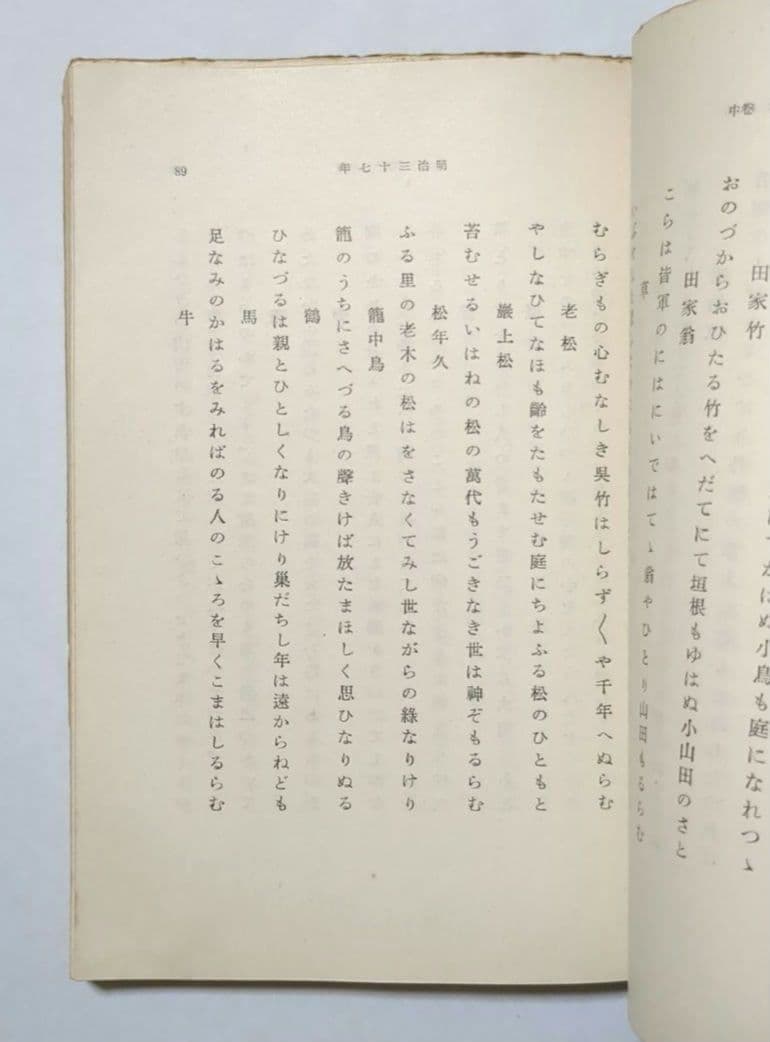 中卷
つゝれなに庭も鳥小ぬは
田家竹
おのづからおひたる竹をへだてにて垣根もゆはぬ小山田のさと
田家翁
こらは皆軍のにはにいではてゝ翁やひとり山田もるらむ
草
明治三十七年
89
むらぎもの心むなしき吳竹はしらず〳〵や千年へぬらむ
老松
やしなひてなほも齡をたもたせむ庭にちよふる松のひともと
巖上松
苔むせるいはねの松の萬代もうごきなき世は神ぞもるらむ
松年久
ふる里の老木の松はをさなくてみし世ながらの綠なりけり
籠中鳥
籠のうちにさへづる鳥の聲きけば放たまほしく思ひなりぬる
鶴
ひなづるは親とひとしくなりにけり巢だちし年は遠からねども
馬
足なみのかはるをみればのる人のこゝろを早くこまはしるらむ
牛